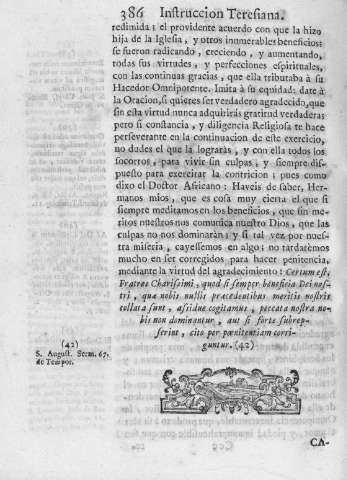 386 Instruccion Teresiana.
redimida: el providente acuerdo con que la hizo
hija de la Iglesia, y otros inumerables beneficios:
se fueron radicando, creciendo, y aumentando,
todas sus virtudes, y perfecciones espirituales,
con las continuas gracias, que ella tributaba à su
Hacedor Omnipotente. Imita à su equidad: date à
la Oracion, si quieres ser verdadero agradecido, que
sin esta virtud nunca adquiriràs gratitud verdadera:
pero si constancia, y diligencia Religiosa te hace
perseverante en la continuacion de este exercicio,
no dudes el que la lograràs, y con ella todos los
socorros, para vivir sin culpas, y siempre dis-
puesto para exercitar la contricion; pues como
dixo el Doctor Africano: Haveis de saber, Her-
manos mios, que es cosa muy cierta el que si
siempre meditamos en los beneficios, que sin me-
ritos nuestros nos comunica nuestro Dios, que las
culpas no nos dominaràn; y si tal vez por nues-
tra miseria, cayessemos en algo; no tardarèmos
mucho en ser corregidos para hacer penitencia,
mediante la virtud del agradecimiento: Certum est,
Fratres Charissimi, quod si semper beneficia Dei nos-
tri, quæ nobis nullis præcedentibus meritis nostris
collata sunt, assidue cogitamus, peccata nostra no-
bis non dominantur, aut si fortè subrep-
serint, cito per pœnitentiam corri-
guntur. (42)
(42)
S. August. Serm. 67.
de Tempor.
CA-